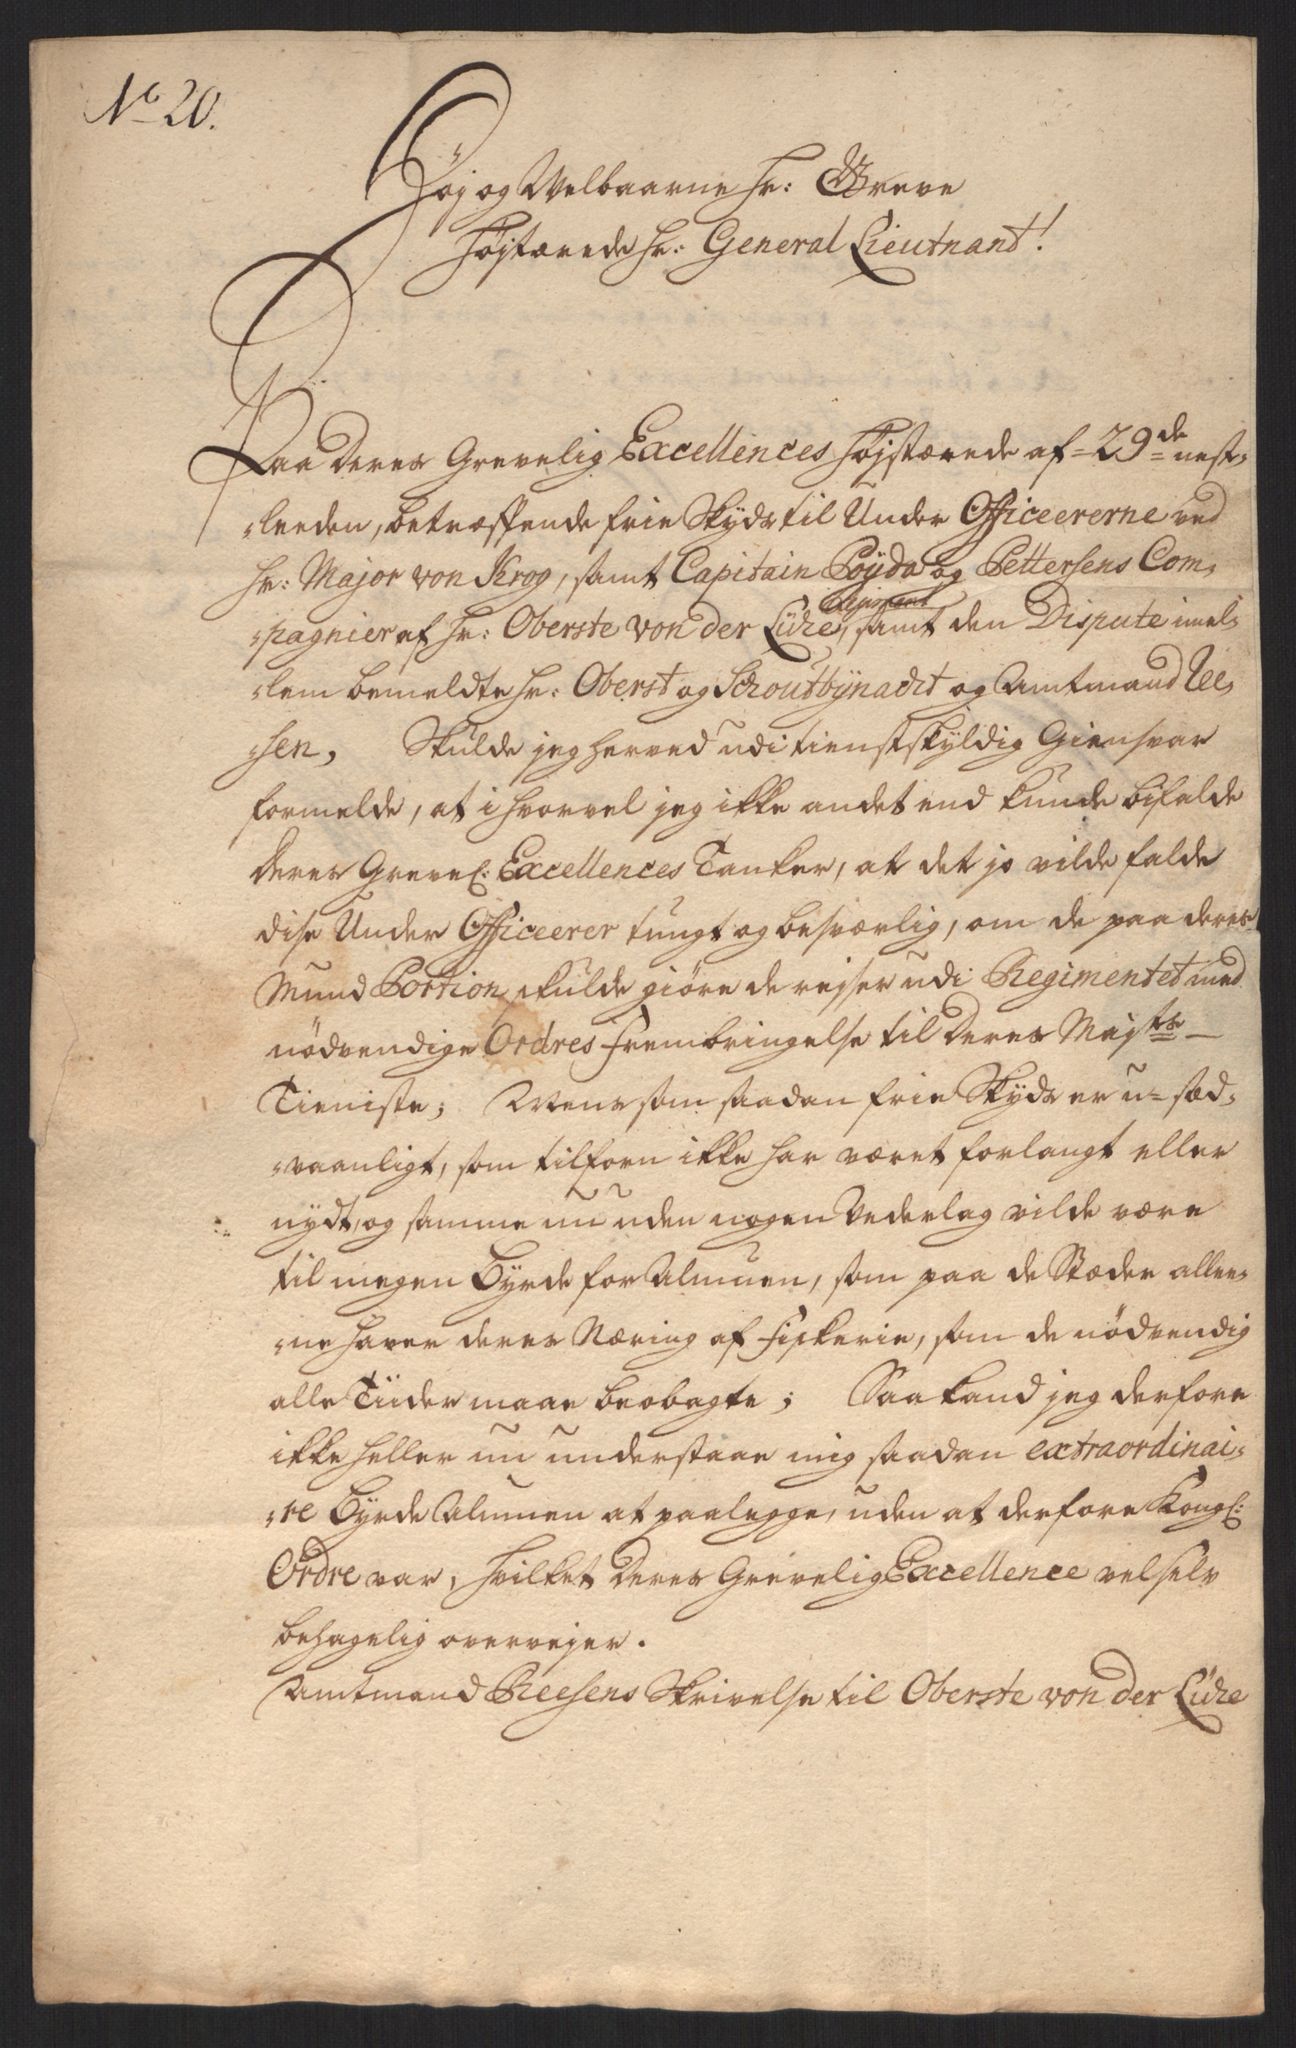 No 20.
Høj og Welbaarne Hr: Greve
Højstærede Hr: General Lieutnant!
Paa Deres Grevelig Excellences Højstærede af 29de nest-
-leeden, betræffende frie Skyds til Under Officeererne ved
Hr: Major von Krog, samt Capitain Poÿda og Pettersens Com-
-pagnier af Hr: Oberste von der Lühe Regiment, samt den Dispute imel-
-lem bemeldte Hr: Oberst og Schoutbÿnacht og Amtmand Ree-
-sen, Skulde jeg herved udi tienstskyldig Giensvar
formelde, at ihvorvel jeg ikke andet end kunde bifalde
Deres Grevel: Excellences Tanker, at det jo vilde falde
dise Under Officeerer tungt og besværlig, om de paa deres
Mund Portion skulde giøre de rejser udi Regimentet med
nødvendige Ordres Frembringelse til Deres Majsts
Tieniste; Mens som saadan frie Skyds er u-sæd-
-vaanligt, som tilforn ikke har været forlangt eller
nydt, og samme nu uden nogen Vederlag vilde være
til megen Byrde for Almuen, som paa de Stæder allee-
-ne haver deres Næring af Fiskerie, som de nødvendig
alle Tiider maae beobagte; Saa kand jeg derfore
ikke heller nu understaae mig saadan extraordinai-
-re Byrde Almuen at paalegge, uden at derfore Kongl:
Ordre var, hvilket Deres Grevelig Excellence vel selv
behagelig overvejer.
Amtmand Reesens Skrivelse til Oberste von der Lühe